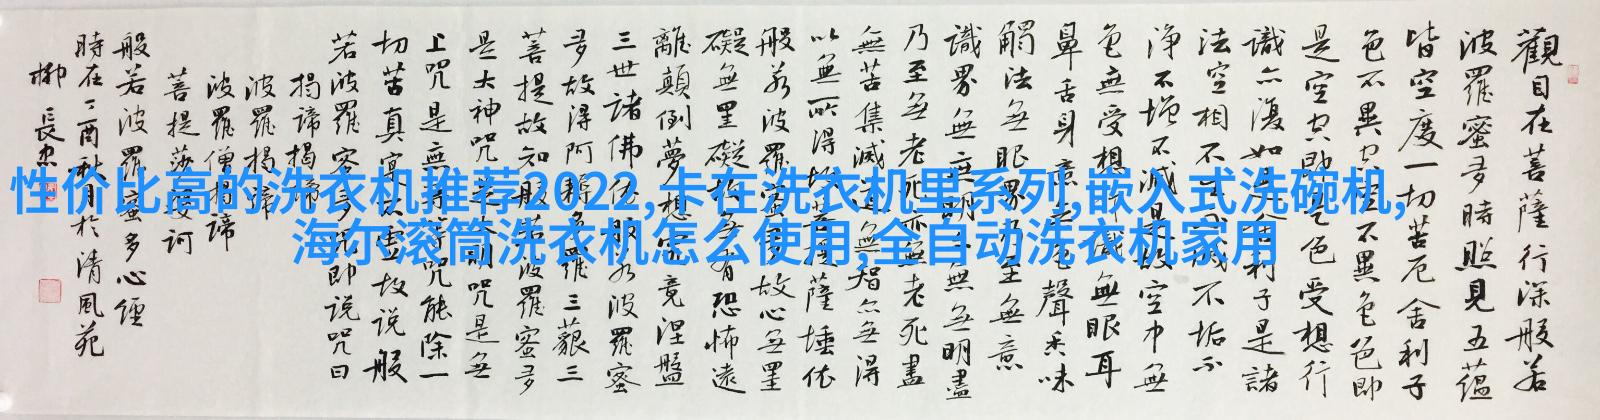 性价比高的洗衣机推荐2022,卡在洗衣机里系列,嵌入式洗碗机,
海尔滚筒洗衣机怎么使用,全自动洗衣机家用
觀自在菩薩行深般若
波羅蜜多時照見五蘊
皆空度一切苦厄舍利子
色不異空空不異色色即
是空空即是色受想行
識亦復如是舍利子是諸
法空相不生不滅不垢不
淨不增不減是故空中無
色無受想行識無眼耳
鼻舌身意無色聲香味
觸法無眼界乃至無意
識界無無明亦無無明盡
乃至無老死亦無老死盡
無苦集滅道無智亦無得
以無所得故菩提薩埵依
般若波羅蜜多故心無罣
礙無罣礙故無有恐怖遠
離顛倒夢想究竟涅盤
三世諸佛依般若波羅蜜
多故得阿耨多羅三藐三
菩提故知般若波羅蜜多
是大神咒是大明咒是無
上咒是無等等咒能除一
切苦真實不虛故說般
若波羅蜜多咒即說咒曰
揭諦揭諦
波羅揭諦
波羅僧揭諦
菩提薩婆訶
般若波羅蜜多心經
時在丁酉秋月於清風苑
柳長忠